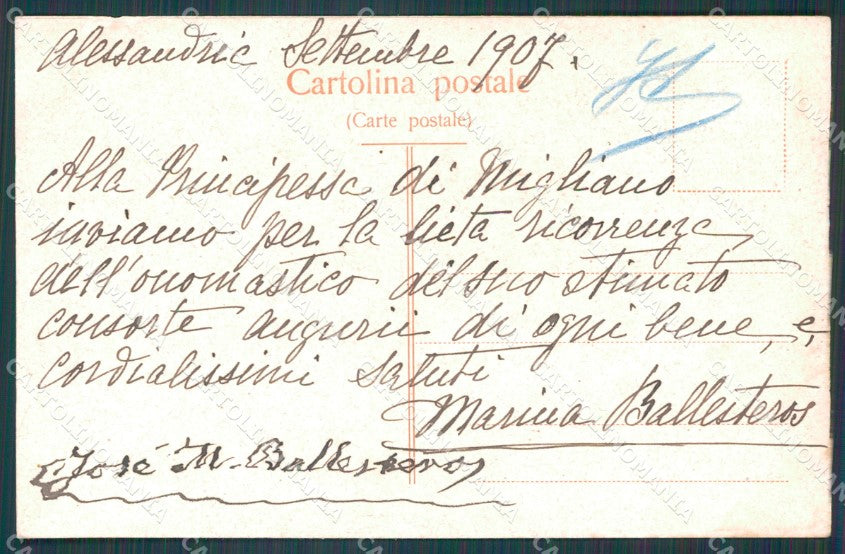 Alessandria Settembre 1907.
Cartolina postale
(Carte postale)
Alla Principessa di Migliano
inviamo per la lieta ricorrenza
dell'onomastico del suo stimato
consorte augurii di ogni bene, e,
cordialissimi saluti
Marina Ballesteros
José M. Ballesteros
CARTOLINOMANIA